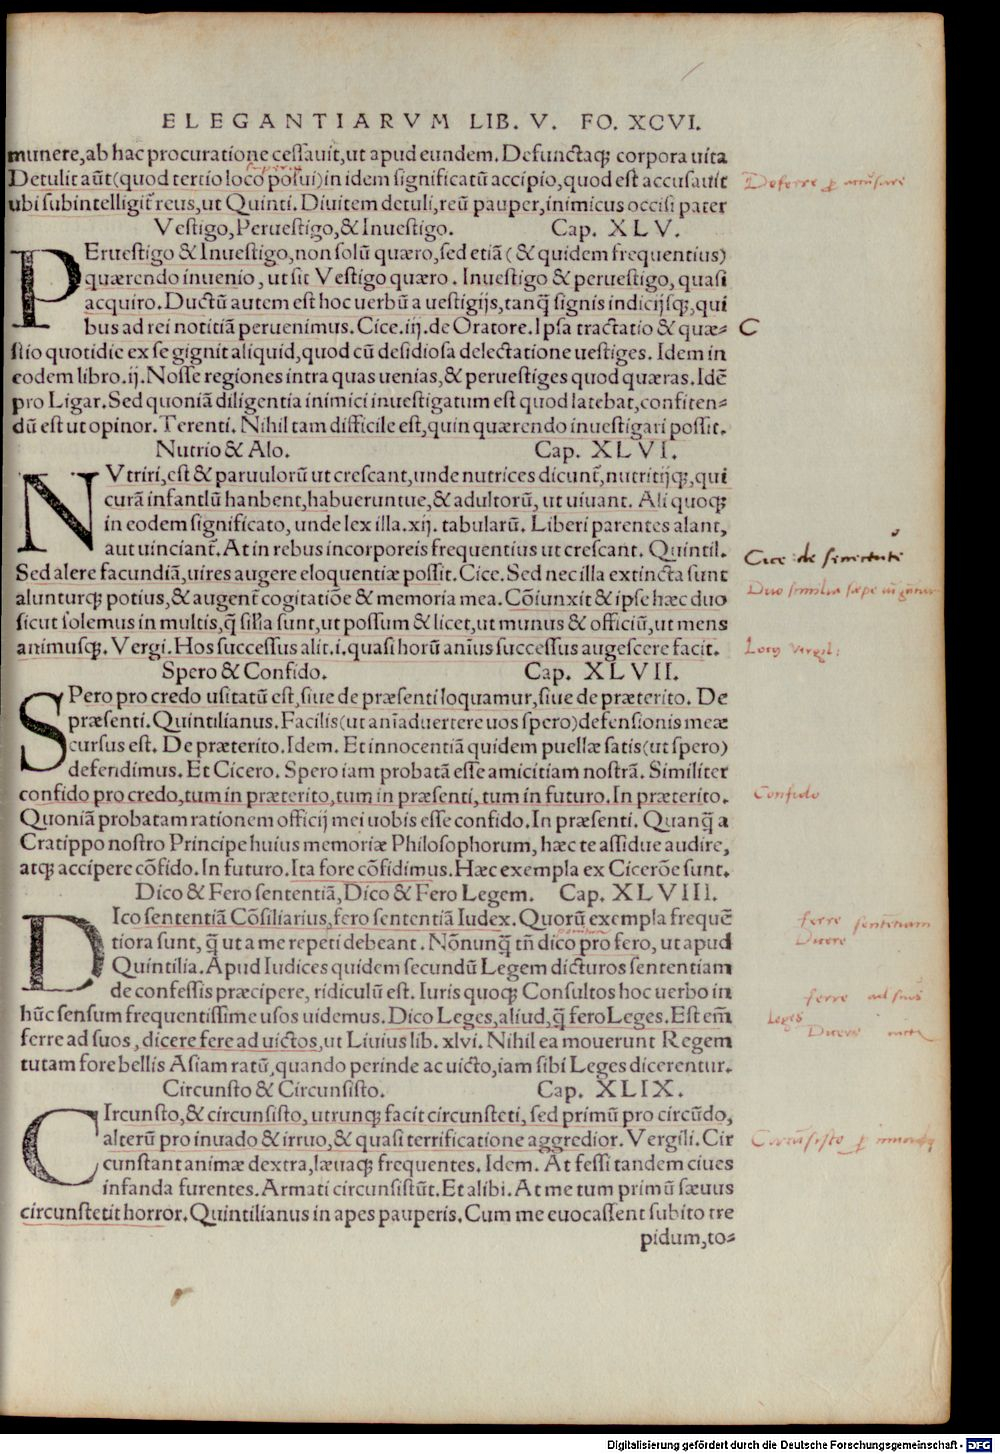 ELEGANTIARVM LIB. V. FO. XCVI.
munere,ab hac procuratione ceſſauit,ut apud eundem. Defunctaq; corpora uita
Detulit aūt(quod tertio loco poſui)in idem ſignificatū accipio,quod eſt accuſauit
Deferre accuſare
ubi ſubintelligit̄ reus,ut Quinti. Diuitem detuli,reū pauper,inimicus occiſi pater
Veſtigo, Perueſtigo,& Inueſtigo. Cap. XLV.
PErueſtigo & Inueſtigo,non ſolū quæro,ſed etiā (& quidem frequentius)
quærendo inuenio, ut ſit Veſtigo quæro. Inueſtigo & perueſtigo, quaſi
acquiro. Ductū autem eſt hoc uerbū a ueſtigijs,tanq̄ ſignis indicijſq;,qui
bus ad rei notitiā peruenimus. Cice.iij.de Oratore.Ipſa tractatio & quæ-
C
ſtio quotidie ex ſe gignit aliquid,quod cū deſidioſa delectatione ueſtiges. Idem in
eodem libro.ij.Noſſe regiones intra quas uenias,& perueſtiges quod quæras. Idē
pro Ligar. Sed quoniā diligentia inimici inueſtigatum eſt quod latebat,confiten-
dū eſt ut opinor. Terenti. Nihil tam difficile eſt,quin quærendo inueſtigari poſſit.
Nutrio & Alo. Cap. XLVI.
NVtriri,eſt & paruulorū ut creſcant,unde nutrices dicunt̄,nutritijq;,qui
curā infantlū hanbent,habueruntue,& adultorū, ut uiuant. Ali quoq;
in eodem ſignificato, unde lex illa.xij. tabularū. Liberi parentes alant,
aut uinciant̄. At in rebus incorporeis frequentius ut creſcant. Quintil.
Cice: de ſenectute
Sed alere facundiā,uires augere eloquentiæ poſſit.Cice. Sed nec illa extincta ſunt
Duo ſimilia ſæpe
alunturq; potius,& augent̄ cogitatiōe & memoria mea. Cōiunxit & ipſe hæc duo
ſicut ſolemus in multis,q̄ ſilia ſunt,ut poſſum & licet,ut munus & officiū,ut mens
animuſq;. Vergi. Hos ſucceſſus alit.i.quaſi horū anīus ſucceſſus augeſcere facit.
Locus Vergil:
Spero & Confido. Cap. XLVII.
SPero pro credo uſitatū eſt,ſiue de præſenti loquamur,ſiue de præterito. De
præſenti. Quintilianus. Facilis(ut aniāduertere uos ſpero)defenſionis meæ
curſus eſt. De præterito. Idem. Et innocentiā quidem puellæ ſatis(ut ſpero)
defendimus. Et Cicero. Spero iam probatā eſſe amicitiam noſtrā. Similiter
confido pro credo,tum in præterito,tum in præſenti, tum in futuro. In præterito.
Confido
Quoniā probatam rationem officij mei uobis eſſe confido. In præſenti. Quanq̄ a
Cratippo noſtro Principe huius memoriæ Philoſophorum, hæc te aſſidue audire,
atq; accipere cōfido. In futuro. Ita fore cōfidimus. Hæc exempla ex Cicerōe ſunt.
Dico & Fero ſententiā, Dico & Fero Legem. Cap. XLVIII.
DIco ſententiā Cōſiliarius,fero ſententiā Iudex. Quorū exempla frequē
ferre ſententiam
tiora ſunt, q̄ ut a me repeti debeant. Nōnunq̄ tn̄ dico pro fero, ut apud
Dicere
Quintilia. Apud Iudices quidem ſecundū Legem dicturos ſententiam
de confeſſis præcipere, ridiculū eſt. Iuris quoq; Conſultos hoc uerbo in
ferre ad ſuos
hūc ſenſum frequentiſſime uſos uidemus. Dico Leges,aliud,q̄ fero Leges. Eſt em̄
Leges
ferre ad ſuos, dicere fere ad uictos,ut Liuius lib. xlvi. Nihil ea mouerunt Regem
Dicere
tutam fore bellis Aſiam ratū,quando perinde ac uicto,iam ſibi Leges dicerentur.
Circunſto & Circunſiſto. Cap. XLIX.
CIrcunſto,& circunſiſto, utrunq; facit circunſteti, ſed primū pro circūdo,
alterū pro inuado & irruo,& quaſi terrificatione aggredior. Vergili. Cir
Circūſiſto
cunſtant animæ dextra,læuaq; frequentes. Idem. At feſſi tandem ciues
infanda furentes. Armati circunſiſtūt. Et alibi. At me tum primū ſæuus
circunſtetit horror. Quintilianus in apes pauperis. Cum me euocaſſent ſubito tre
pidum,to-
Digitalisierung gefördert durch die Deutsche Forschungsgemeinschaft - DFG